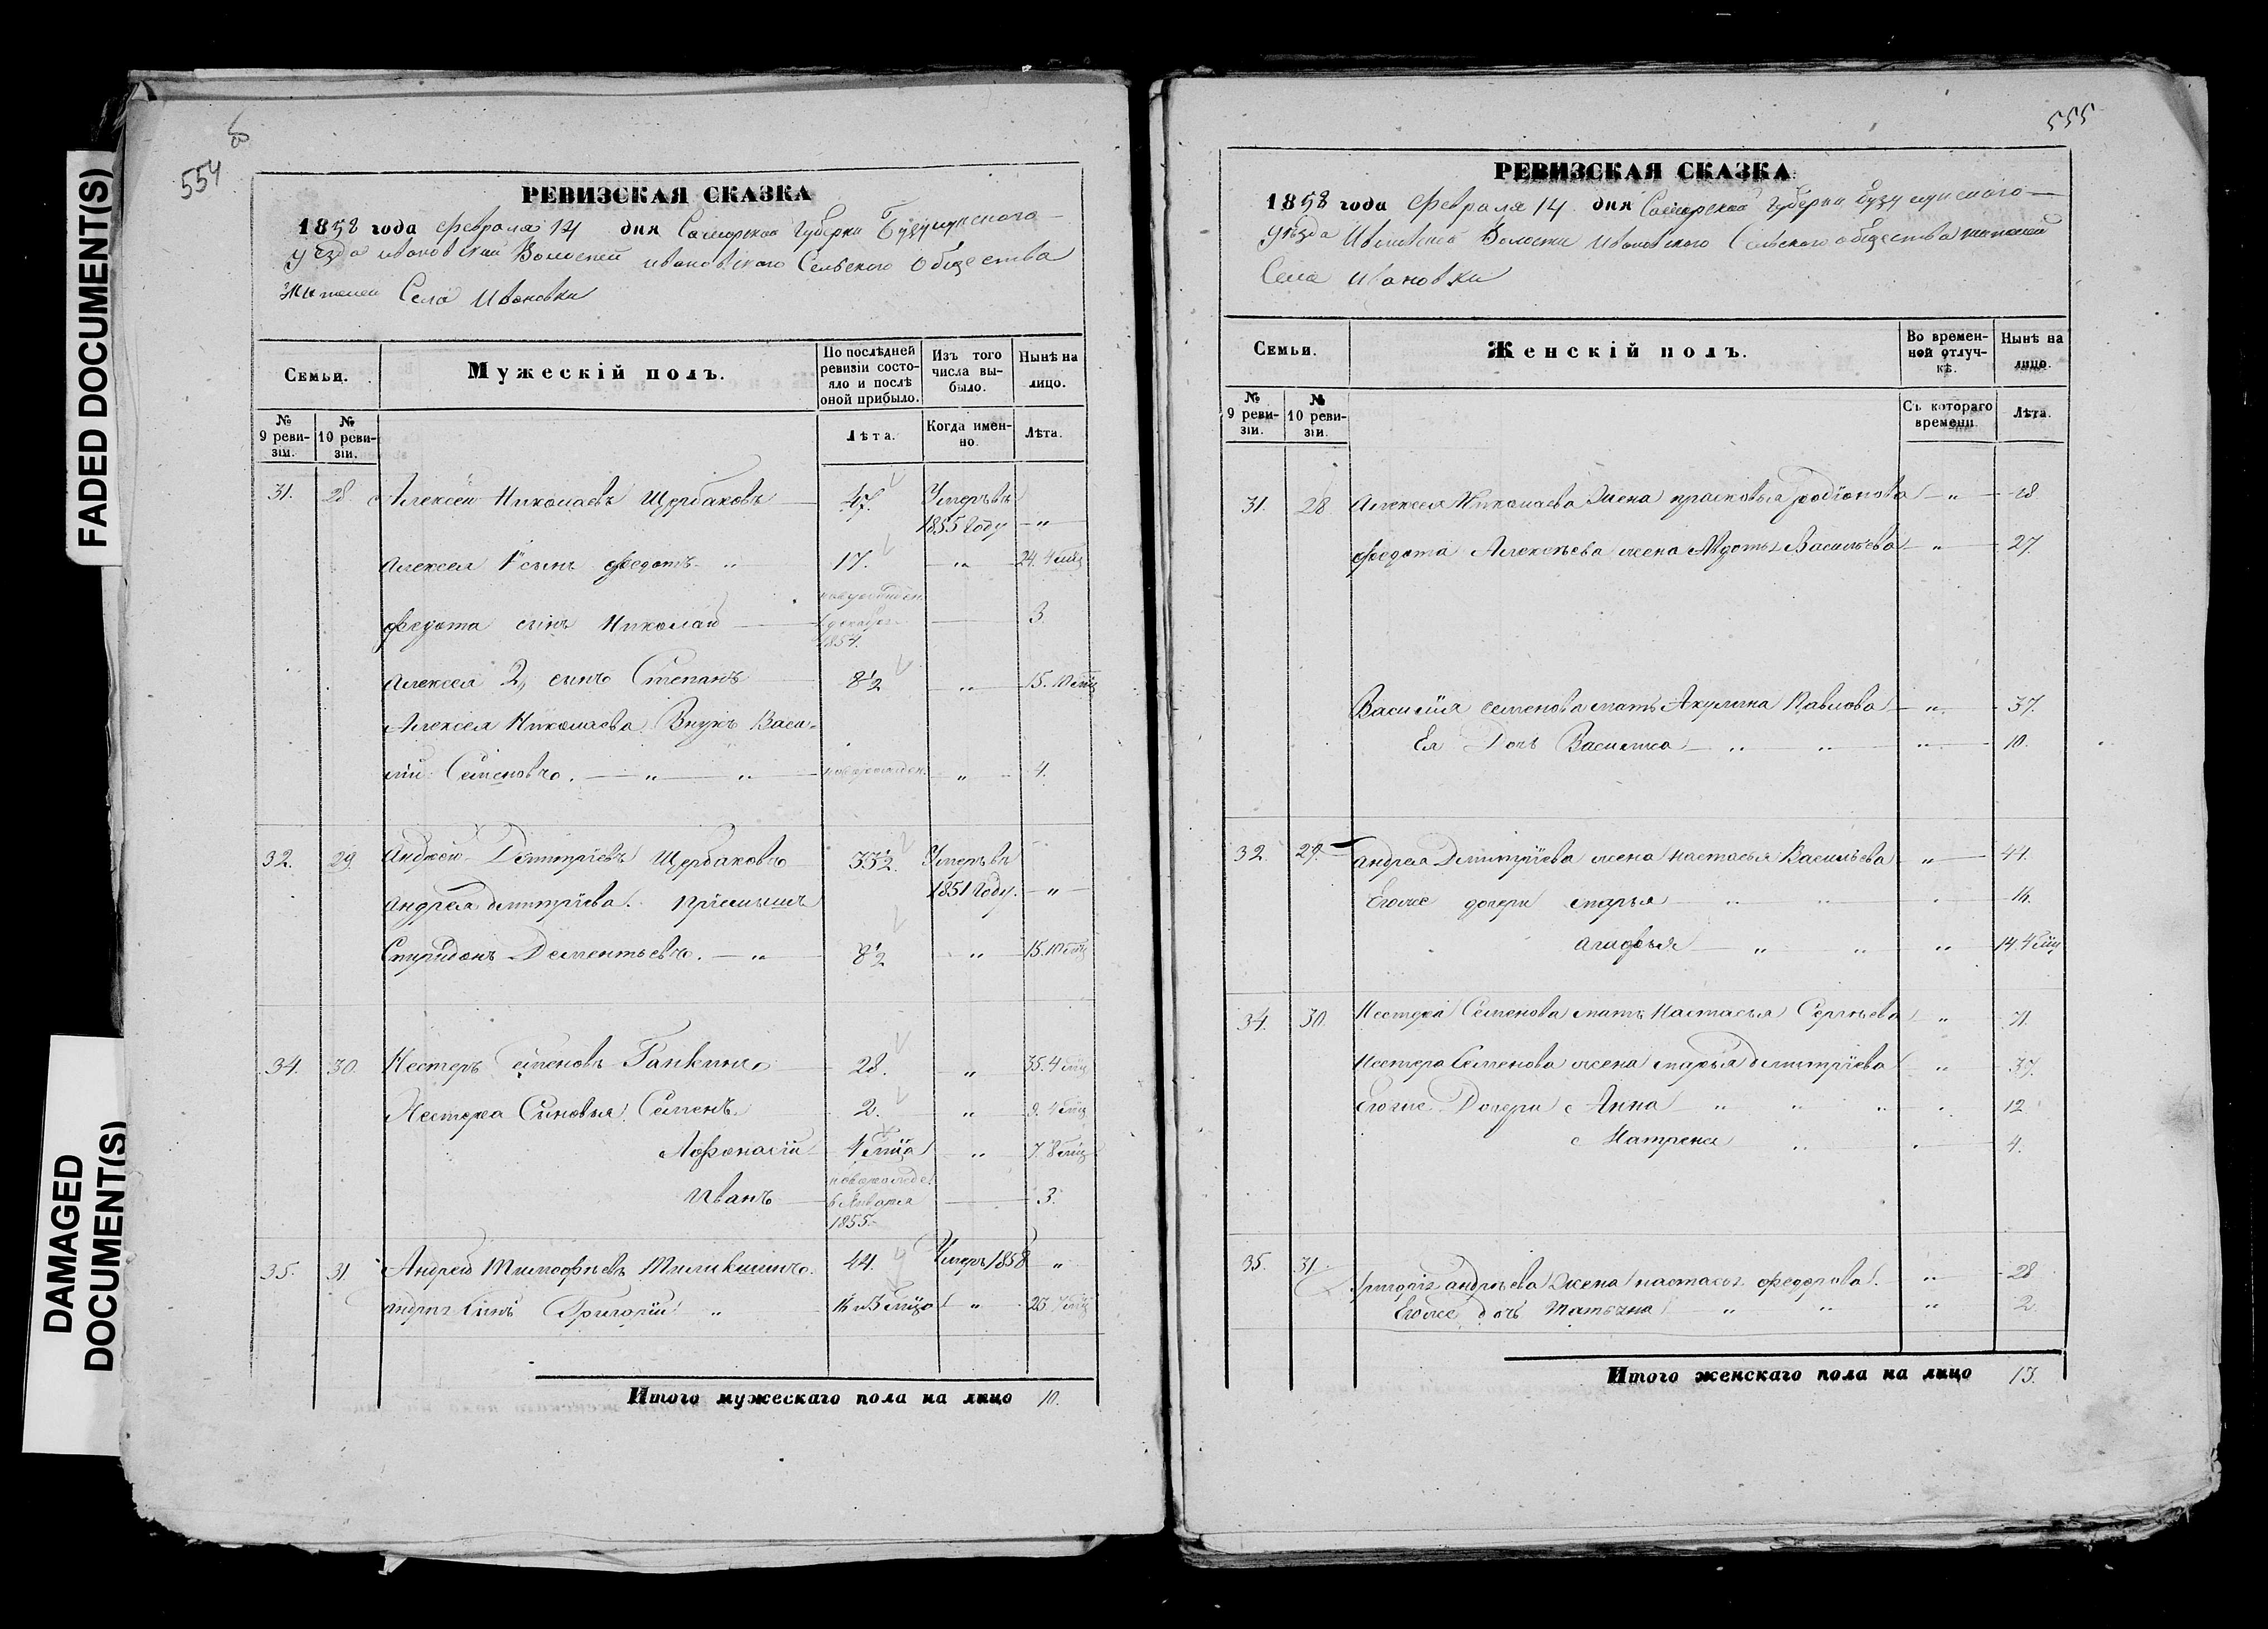 FADED DOCUMENT(S)
DAMAGED
DOCUMENT(S)
554
РЕВИЗСКАЯ СКАЗКА
1858 года февраля 14 дня Самарской Губерни Бузулукского
уезда ивановской Волостей ивановского Сельского общества
жителей Села Ивановки
Семьи.
Мужескій полъ.
По послѣдней
ревизіи состо-
яло и послѣ
оной прибыло.
Изъ того
числа вы-
было.
Нынѣ на
лицо.
№
9 реви-
зіи.
№
10 реви-
зіи.
Лѣта.
Когда имен-
но.
Лѣта.
31. 28. Алексей Николаевъ Щербаковъ 47. Умеръ въ
1855 Году "
Алексея 1 сынъ федотъ " 17. " 24. 4 мѣц
новорожден.
федота сынъ Николай декабря 3.
1854.
Алексея 2, сынъ Степанъ 8 1/2 " 15. 10 мѣц
Алексея Николаева Внукъ Васи-
лій Семеновъ. " " новорожден. " 4.
32. 29. Андрей Дмитріевъ Щербаковъ 33 1/2. Умеръ въ
1851 Году. "
Андрея дмитріева. пріемышъ
Спиридонъ Дементьевъ. " 8 1/2 " 15. 10 мѣц
34. 30. Нестеръ Семеновъ Ганкинъ 28. " 35. 4 мѣц
Нестера Сыновья Семенъ. 2. " 9. 4 мѣц
Афонасій 4 мѣца " 7. 8 мѣц
Иванъ новорожде. 3.
6 Января
1855
35. 31. Андрей Тимофѣевъ 44. Умеръ 1858 "
Сынъ Григорій " 16 и 3 мѣца " 23
Итого мужескаго пола на лицо 10.
555
РЕВИЗСКАЯ СКАЗКА
1858 года февраля 14 дня Самарской Губерни бузулукского
уѣзда Ивановской Волости ивановского Сельского общества жителей
Села Ивановки
Семьи.
Женскій полъ.
Во времен-
ной отлуч-
кѣ.
Нынѣ на
лицо.
№
9 реви-
зіи.
№
10 реви-
зіи.
Съ котораго
времени
Лѣта.
31. 28. Алексея Николаева Жена прасковья родіонова "
федота Алексеева жена Авдотья Васильева " 27.
Василія семенова мать Акулина Павлова " 37.
Ея Дочь Василиса " " " 10.
32. 29. андрея Дмитріева жена настасья Васильева " 44.
Егоже дочери марья " " " 16.
агафья " " " 14. 4 мѣц
34. 30. Нестера Семенова мать Настасья Сергѣева " 71.
Нестера Семенова жена марья дмитріева " 37.
Егоже Дочери Анна " " " 12
Матрена " 4.
35. 31. Григорія андрѣева Жена настасья федорова. " 28
Егоже дочь татьяна " " " 2.
Итого женскаго пола на лицо 13.